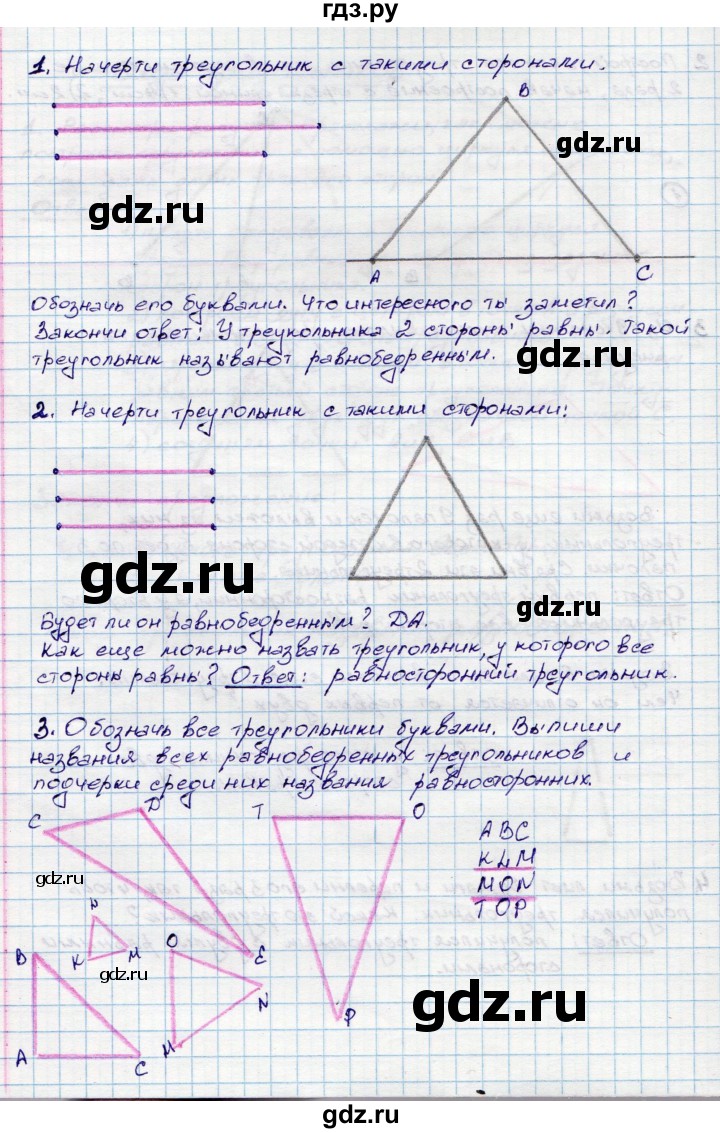 гдз.ру
1. Начерти треугольник с такими сторонами.
B
gdz.ru
gdz.ru
A
C
Обозначь его буквами. Что интересного ты заметил?
Закончи ответ: У треукольника 2 стороны равны. Такой
треугольник называют равнобедренным.
gdz.ru
2. Начерти треугольник с такими сторонами:
gdz.ru
gdz.ru
Будет ли он равнобедренным? ДА.
Как еще можно назвать треугольник, у которого все
стороны равны? Ответ: равносторонний треугольник.
3. Обозначь все треугольники буквами. Выпиши
названия всех равнобедренных треугольников и
подчерки среди них названия равносторонних.
C
D
T
O
ABC
KLM
MON
TOP
gdz.ru
B
K
M
O
E
N
P
gdz.ru
gdz.ru
A
C
M
gdz.ru